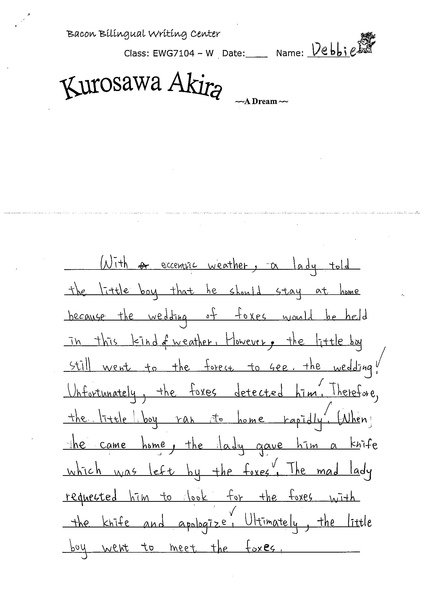 Bacon Bilingual Writing Center
Class: EWG7104 – W Date:____ Name: Debbie
Kurosawa Akira
~~A Dream~~
With eccentric weather, a lady told
the little boy that he should stay at home
because the wedding of foxes would be held
in this kind of weather. However, the little boy
still went to the forest to see the wedding.
Unfortunately, the foxes detected him. Therefore,
the little boy ran to home rapidly. When
he came home, the lady gave him a knife
which was left by the foxes. The mad lady
requested him to look for the foxes with
the knife and apologize. Ultimately, the little
boy went to meet the foxes.